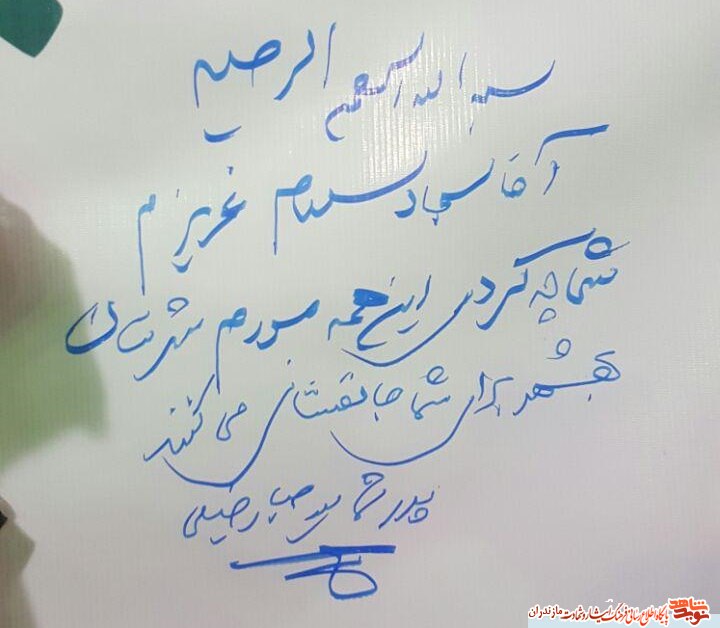 بسم الله الرحمن الرحیم
آقا سجاد سلام عزیزم
شما چه کردی این همه مردم شهرستان
بهشهر برای شما جانفشانی می کنند
پدر شما سید
نوید شاهد پایگاه اطلاع رسانی فرهنگ ایثار و شهادت مازندران